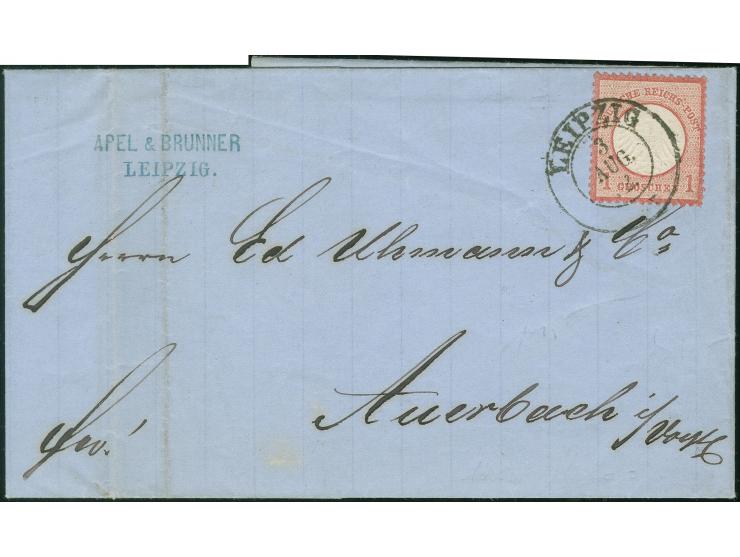 APEL & BRUNNER
LEIPZIG.
DEUTSCHE REICHS-POST
1 GROSCHEN 1
LEIPZIG
3
AUG
Herrn Ed Uhmann & Co
Auerbach i/Voigtl
fro!